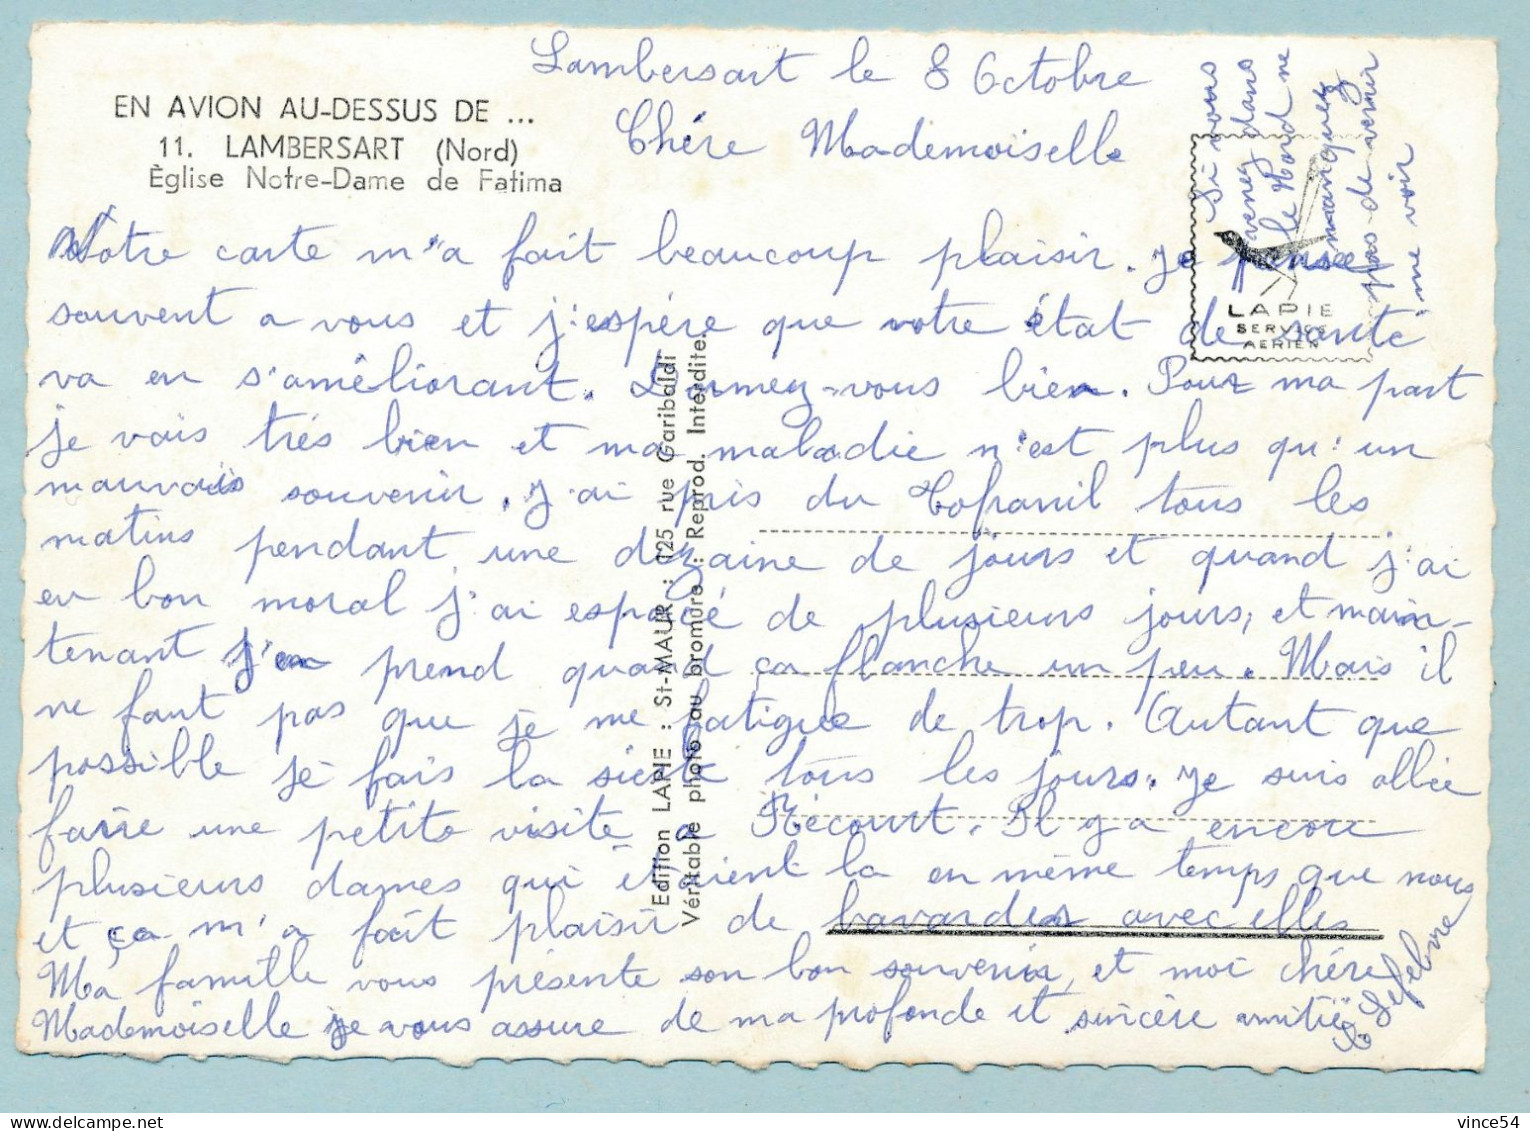 EN AVION AU-DESSUS DE ...
11. LAMBERSART (Nord)
Église Notre-Dame de Fatima
Lambersart le 8 Octobre
Chére Mademoiselle
Votre carte m'a fait beaucoup plaisir. Je pense
souvent a vous et j'espére que votre état de santé
va en s'améliorant. Dormez-vous bien. Pour ma part
je vais trés bien et ma maladie n'est plus qu'un
mauvais souvenir. J'ai pris du Tofranil tous les
matins pendant une dizaine de jours et quand j'ai
eu bon moral j'ai espacé de plusieurs jours, et main-
tenant j'en prend quand ça flanche un peu. Mais il
ne faut pas que je me fatigue de trop. Autant que
possible je fais la sieste tous les jours. Je suis allée
faire une petite visite a Récourt. Il y a encore
plusieurs dames qui étaient la en même temps que nous
et ça m'a fait plaisir de bavarder avec elles
Ma famille vous présente son bon souvenir, et moi chére
Mademoiselle je vous assure de ma profonde et sincère amitié
C Lefebvre
Si vous
venez dans
le Nord ne
manquez
pas de venir
me voir
LAPIE
SERVICE
AERIEN
Edition LAPIE : St-MAUR : 125 rue Garibaldi
Véritable photo au bromure : Reprod. Interdite.
vince54